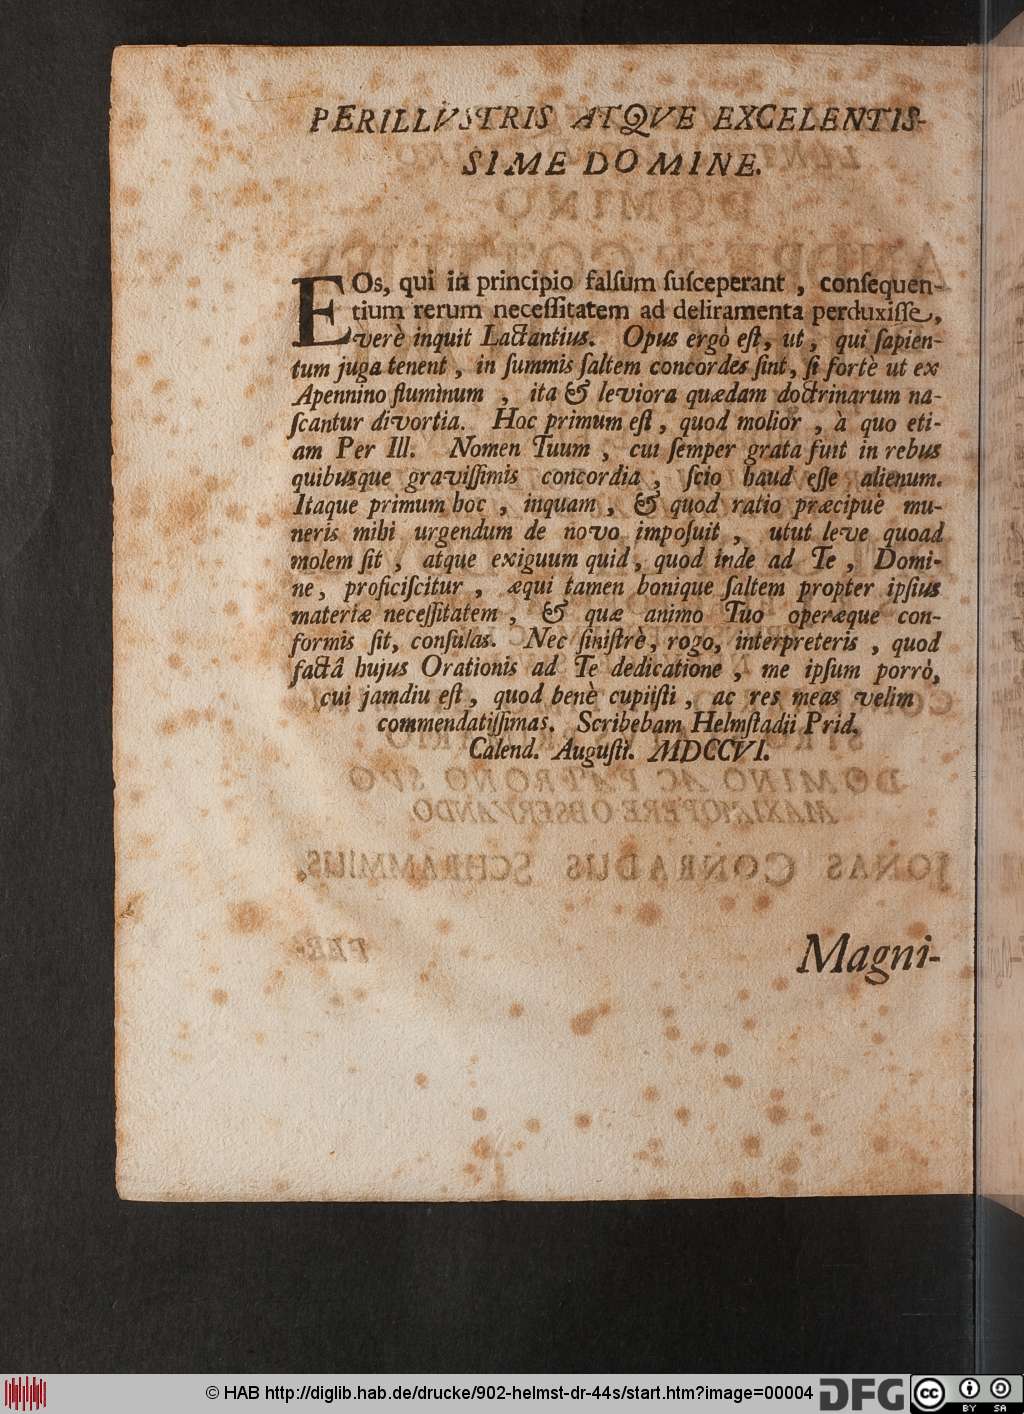 PERILLVSTRIS ATQVE EXCELENTIS-
SIME DOMINE.
EOs, qui in principio falſum ſuſceperant, conſequen-
tium rerum neceſſitatem ad deliramenta perduxiſſe,
verè inquit Lactantius. Opus ergò eſt, ut, qui ſapien-
tum juga tenent, in ſummis ſaltem concordes ſint, ſi fortè ut ex
Apennino fluminum, ita & leviora quædam doctrinarum na-
ſcantur divortia. Hoc primum eſt, quod molior, à quo eti-
am Per Ill. Nomen Tuum, cui ſemper grata fuit in rebus
quibusque graviſſimis concordia, ſcio haud eſſe alienum.
Itaque primum hoc, inquam, & quod ratio præcipuè mu-
neris mihi urgendum de novo impoſuit, utut leve quoad
molem ſit, atque exiguum quid, quod inde ad Te, Domi-
ne, proficiſcitur, æqui tamen bonique ſaltem propter ipſius
materiæ neceſſitatem, & quæ animo Tuo operæque con-
formis ſit, conſulas. Nec ſiniſtrè, rogo, interpreteris, quod
factâ hujus Orationis ad Te dedicatione, me ipſum porrò,
cui jamdiu eſt, quod benè cupiiſti, ac res meas velim
commendatiſſimas. Scribebam Helmſtadii Prid.
Calend. Auguſti. MDCCVI.
Magni-
© HAB http://diglib.hab.de/drucke/902-helmst-dr-44s/start.htm?image=00004
DFG
cc BY SA